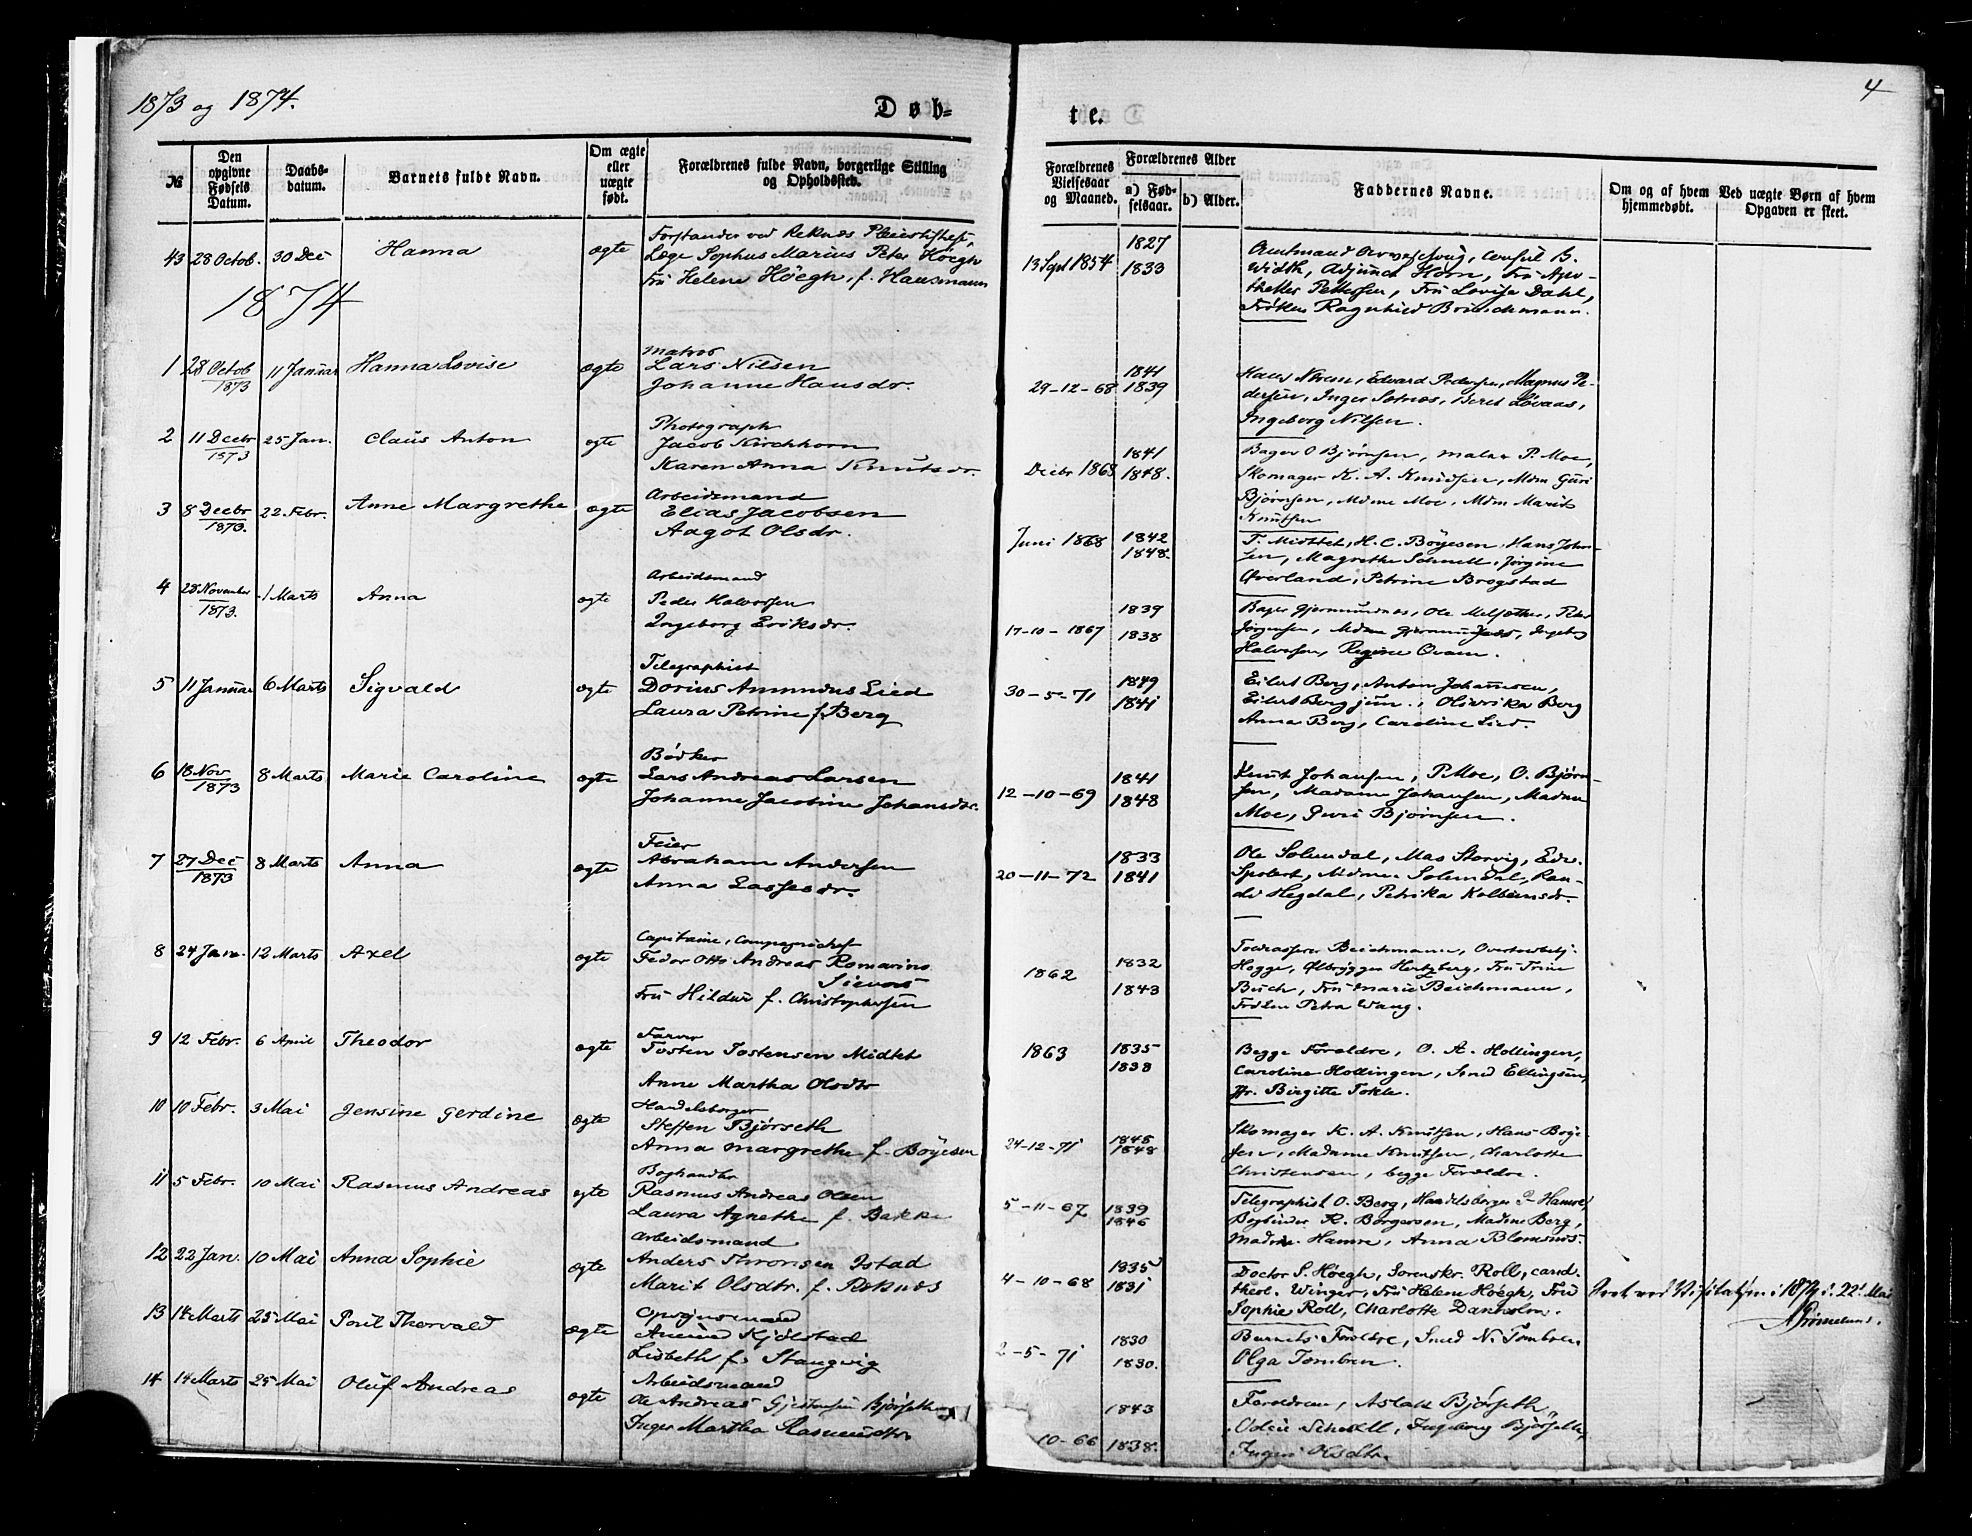 1873 og 1874.
Døb-
te.
4
№
Den opgivne Fødsels Datum.
Daabs-datum.
Barnets fulde Navn.
Om ægte eller uægte født.
Forældrenes fulde Navn, borgerlige Stilling og Opholdssted.
Forældrenes Vielsesaar og Maaned.
Forældrenes Alder
a) Fødselsaar.
b) Alder.
Faddernes Navne.
Om og af hvem hjemmedøbt.
Ved uægte Børn af hvem Opgaven er skeet.
43 28 Octob. 30 Dec Hanna ægte Forstander ved Reknes Pleiestiftelse,
Læge Sophus Marius Peter Höegh
Fru Helene Höegh, f. Hausmann
13 Sept 1854 1827
1833
Amtmand consul B.
Width, Adjunct Horn, Fru Apo-
theker Pettersen, Fru Lovise Dahl,
Frøken Ragnhild
1874
1 28 Octob 1873 11 Januar Hanna Lovise ægte Matros
Lars Nilsen
Johanne Hansdr.
29-12-68 1841
1839
Hans Edvard Pedersen, Magnus Pe-
dersen, Inger Beret Løvaas,
Ingeborg Nilsen.
2 11 Decbr 1873 25 Jan. Claus Anton ægte Photograph
Jacob Kirchhorn
Karen Anna Knutsdr.
Decbr 1868 1841
1848.
Bager O Bjørnsen, maler P. Moe,
Skomager K. A. Knudsen, Mdm Guri
Bjørnsen, Mdme Moe, Mdm Marit
Knutsen
3 8 Decbr 1873. 22 Febr. Anne Margrethe ægte Arbeidsmand
Elias Jacobsen
Aagot Olsdr.
Juni 1868 1842
1848.
T. H. C. Böyesen, Hans John-
sen, Magrethe Schnell, Jørgine
Øverland, Petrine Brogstad
4 28 November 1873. 1 Marts Anna ægte Arbeidsmand
Peder Halvorsen
Ingeborg Eriksdr.
17-10-1867 1839
1838
Bager Gjermundnes, Ole Peder
Jørgensen, Mdme
Halvorsen, Regine
5 11 Januar 6 Marts Sigvald ægte Telegraphist
Dorius Amundus Lied
Laura Petrine f. Berg
30-5-71 1849
1841
Eilert Berg, Anton Johannsen,
Eilert Berg jun., Olivrika Berg
Anna Berg, Caroline Lied.
6 18 Nov 1873 8 Marts Marie Caroline ægte Bödker
Lars Andreas Larsen
Johanne Jacobine Johansdr.
12-10-69 1841
1848
Knut Johansen, P. Moe, O. Bjørn-
sen, Madame Johansen, Madam
Moe, Guri Bjørnsen.
7 27 Dec 1873 8 Marts Anna ægte Feier
Abraham Andersen
Anna Lassesdr.
20-11-72 1833
1841
Ole Solemdal, Mas Storvig, Edv.
Mdme Solemdal, Ran-
di Hegdal, Petrika Kolbeinsdr.
8 24 Jan. 12 Marts Axel ægte Capitaine, Compagnichef
Fedor Otto Andreas Romarino
Sievers
Fru Hildur f. Christophersen
1862 1832
1843
Toldkasserer Beichmann,
Hegge, Ølbrygger Hertzberg, Fru Trine
Buch, Fru Marie Beichmann,
Frøken Petra Wang.
9 12 Febr. 6 April Theodor ægte Farver
Tosten Tostensen Midtet
Anne Martha Olsdtr
1863 1835
1838
Begge Forældre, O. A. Hollingen,
Caroline Hollingen, Smed Ellingsen,
Fr. Birgitte Tokle.
10 10 Febr. 3 Mai Jensine Gerdine ægte Handelsborger
Steffen Bjørseth
Anna Margrethe f. Böyesen
24-12-71 1845
1848
Skomager K. A. Knutsen, Hans Böye-
sen, Madame Knutsen, Charlotte
Christensen, begge Forældre.
11 5 Febr. 10 Mai Rasmus Andreas ægte Boghandler
Rasmus Andreas Olsen
Laura Agnethe f. Bakke
5-11-67 1839
1846
Telegraphist O. Berg, Handelsborger Hamre,
Bogbinder R. Borgersen, Madme Berg,
Madme Hamre, Anna Blomsnes.
12 22 Jan. 10 Mai Anna Sophie ægte Arbeidsmand
Anders Thronsen Istad
Marit Olsdtr. f. Reknes
4-10-68 1835
1831
Doctor S. Höegh, Sorenskr. Roll, cand.
theol. Winger, Fru Helene Höegh, Fru
Sophie Roll, Charlotte Danholm.
Seet ved Visitatsen i 1874 d. 22d Mai
13 14 Marts 25 Mai Thorvald ægte Opsynsmand
Kjölstad
Lisbeth f. Stangvig
2-5-71 1830
1830.
Barnets Forældre, Smed N. Tombren
Olga Tombren.
14 14 Marts 25 Mai Oluf Andreas ægte Arbeidsmand
Ole Andreas Bjørseth
Inger Martha Rasmusdtr
10-66 1843
1838.
Forældrene, Aslak Bjørseth
Ingeborg Bjørseth,
Olsdtr.